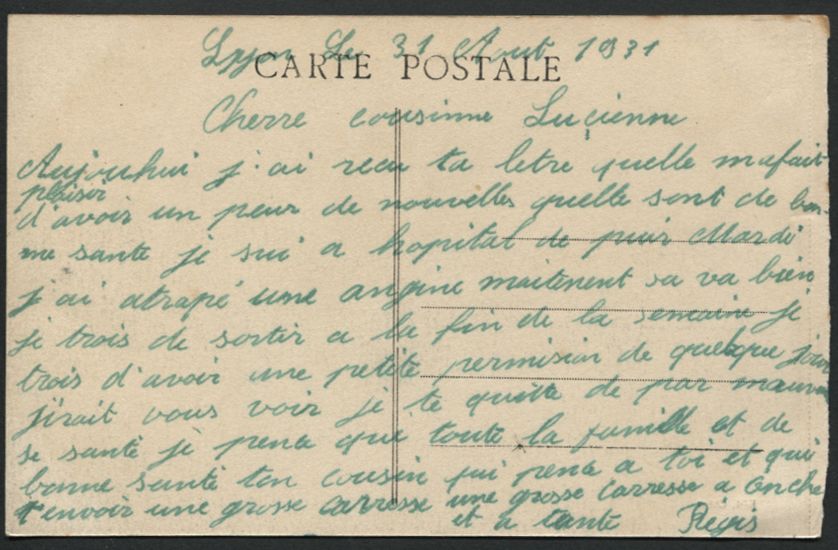 Lyon Le 31 Aout 1931
CARTE POSTALE
Cherre cousinne Luçienne
Aujouhui j'ai recu ta letre quelle mafait
plaisir
d'avoir un peur de nouvelles quelle sont de bon
ne santé je sui a hopital de puis Mardi
j'ai atrapé une angine maitenent sa va bien
je trois de sortir a la fin de la semaine je
trois d'avoir une petite permision de quelque jour
j'irait vous voir je te quitte de par mauva
se santé je pence que toute la famille et de
bonne santé ton cousin qui pence a toi et qui
t'envoir une grosse carresse une grosse carresse a Oncle
et a tante Régis